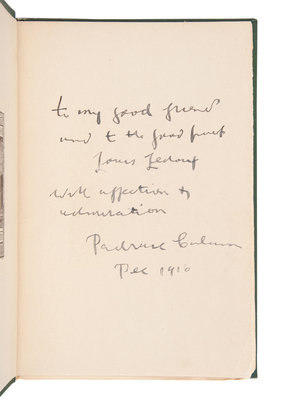 to my good friend
and to the good poet
Louis Ledoux
with affection &
admiration
Padraic Colum
Dec 1916